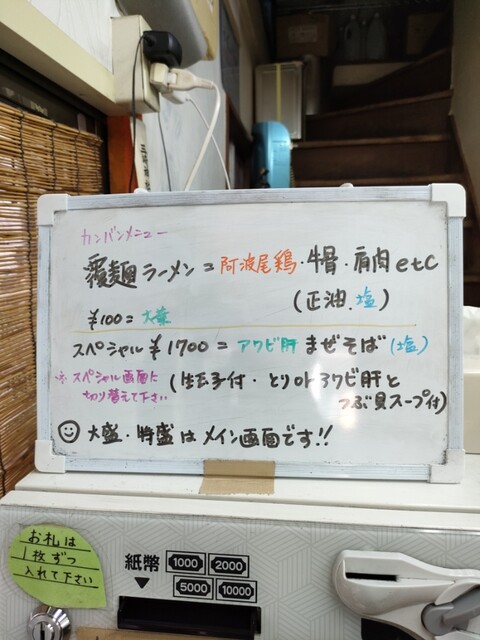 カンバンメニュー
覆麺ラーメン=阿波尾鶏・牛骨・肩肉etc
(正油.塩)
¥100=大葉
スペシャル¥1700=アワビ肝まぜそば(塩)
※スペシャル画面に
切り替えて下さい
(生玉子付・とりのアワビ肝と
つぶ貝スープ付)
大盛・特盛はメイン画面です!!
お札は
1枚ずつ
入れて下さい
紙幣
1000 2000
5000 10000